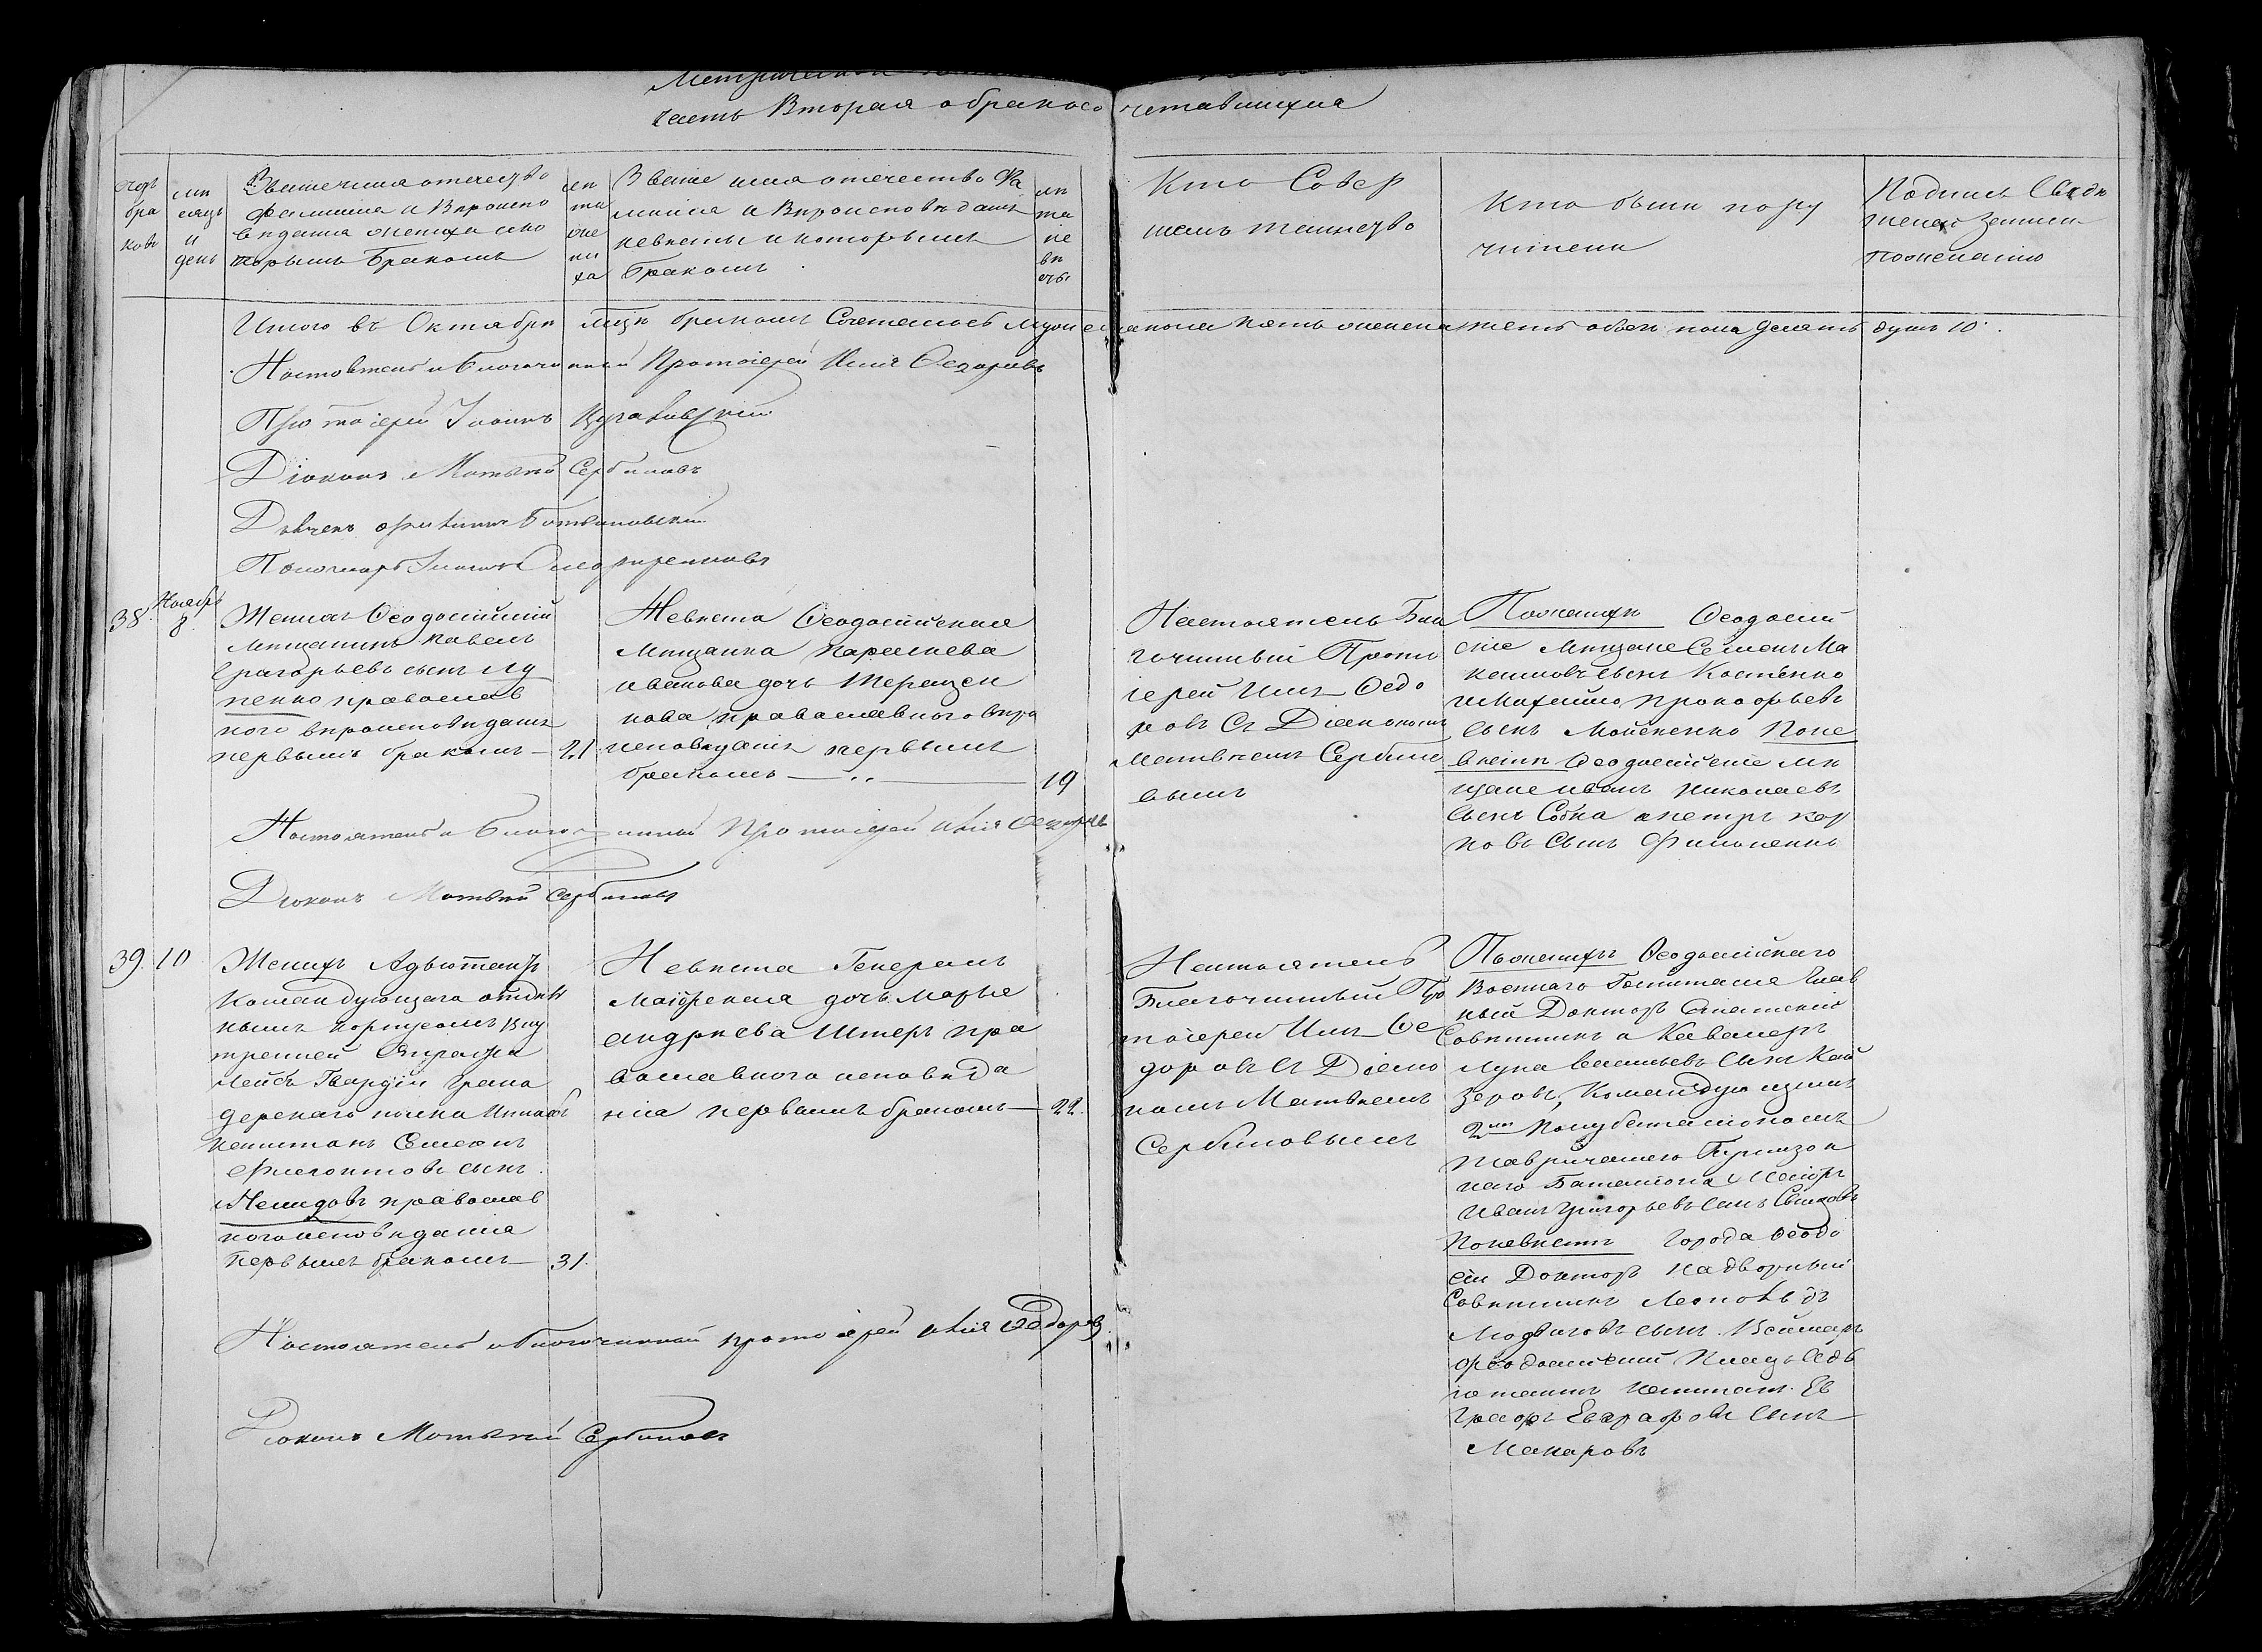 часть Вторая о бракосочетавшихся
счетъ браковъ
мѣсяцъ и день
Званіе имя отечество
фамилія и Вѣроиспо
вѣданія жениха и ко
торымъ бракомъ
лѣта жениха
Званіе имя отечество Фа
милія и Вѣроисповѣданіе
невѣсты и которымъ
бракомъ
лѣта невѣсты
Кто Совер
шалъ таинство
Кто были пору
чители
Подпись Свидѣ
телей записи
по желанію
Итого въ Октябрѣ мцѣ бракомъ Сочеталось мужеска пола пять женска пять обоего пола десять душъ 10.
Настоятель и Благочинный Протоіерей Илія Ѳедоровъ
Протоіерей Іоаннъ
Діаконъ Матѳей Сербиновъ
Дьячекъ
Пономарь Іоаннъ
38.
Ноябрь
8.
Женихъ Ѳеодосійскій
Мѣщанинъ Павелъ
Григорьевъ сынъ Лу
ценко православ
ного вѣроисповѣданія
первымъ бракомъ — 21
Невѣста Ѳеодосійская
Мѣщанка Параскева
Иванова дочь Терещен
кова, православного вѣро
исповѣданія первымъ
бракомъ — 19
Настоятель Бла
гочинный Прото
іерей Илія Ѳедо
ровъ Съ Діакономъ
Матвѣемъ Сербино
вымъ
По женихѣ Ѳеодосій
скіе Мѣщане Семенъ Ма
ксимовъ сынъ Костенко
и Михайло Прокофьевъ
сынъ Мойсеенко По не
вѣстѣ Ѳеодосійскіе Мѣ
щане Иванъ Николаевъ
сынъ Собка и Петръ Кар
повъ сынъ Филоненко
Настоятель и Благочинный Протоіерей Илія Ѳедоровъ
Діаконъ Матѳей Сербиновъ
39. 10
Женихъ Адъютантъ
Командующаго отдѣль
нымъ корпусомъ Вну
тренней Стражи
Лейбъ Гвардіи Грена
дерскаго полка Штабсъ
Капитанъ Симеонъ
Флегонтовъ сынъ
Демидовъ православ
ного исповѣданія
первымъ бракомъ — 31.
Невѣста Генералъ
Маіорская дочь Марья
Андрѣева Штеръ пра
вославного исповѣда
нія первымъ бракомъ — 22.
Настоятель
Благочинный Про
тоіерей Илія Ѳе
доровъ съ Діако
номъ Матвѣемъ
Сербиновымъ
По женихѣ Ѳеодосійскаго
Военнаго Гошпиталя Глав
ный Докторъ Статскій
Совѣтникъ и Кавалеръ
Лука Васильевъ сынъ Кай
зеровъ, Командующій
2мъ Полубаталіономъ
Таврическаго Гарнизон
наго Баталіона Маіоръ
Иванъ Григорьевъ сынъ
По невѣстѣ Города Ѳеодо
сіи Докторъ Надворный
Совѣтникъ Леопольдъ
Людвиговъ сынъ Веймаръ
Ѳеодосійскій Плацъ Адъ
ютантъ Капитанъ Ев
графъ Евграфовъ сынъ
Макаровъ
Настоятель и Благочинный протоіерей Илія Ѳедоровъ
Діаконъ Матѳей Сербиновъ